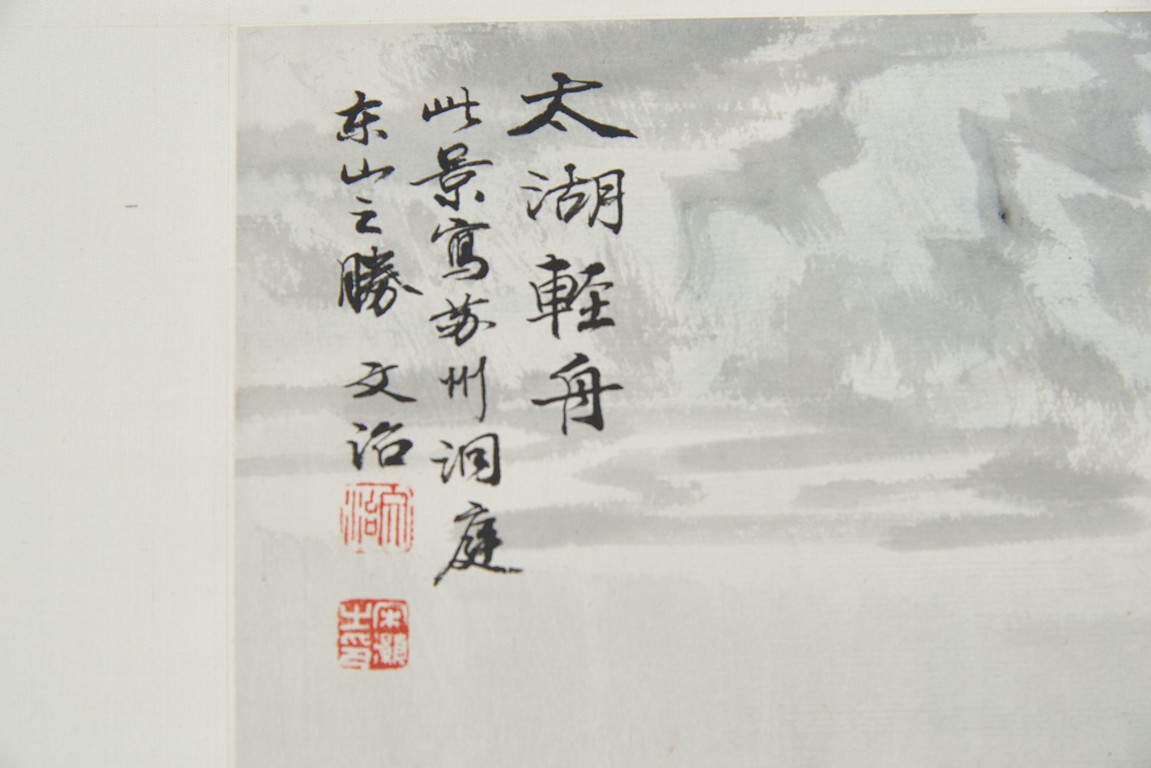 太湖輕舟
此景寫苏州洞庭
东山之勝 文治
宋灝之印